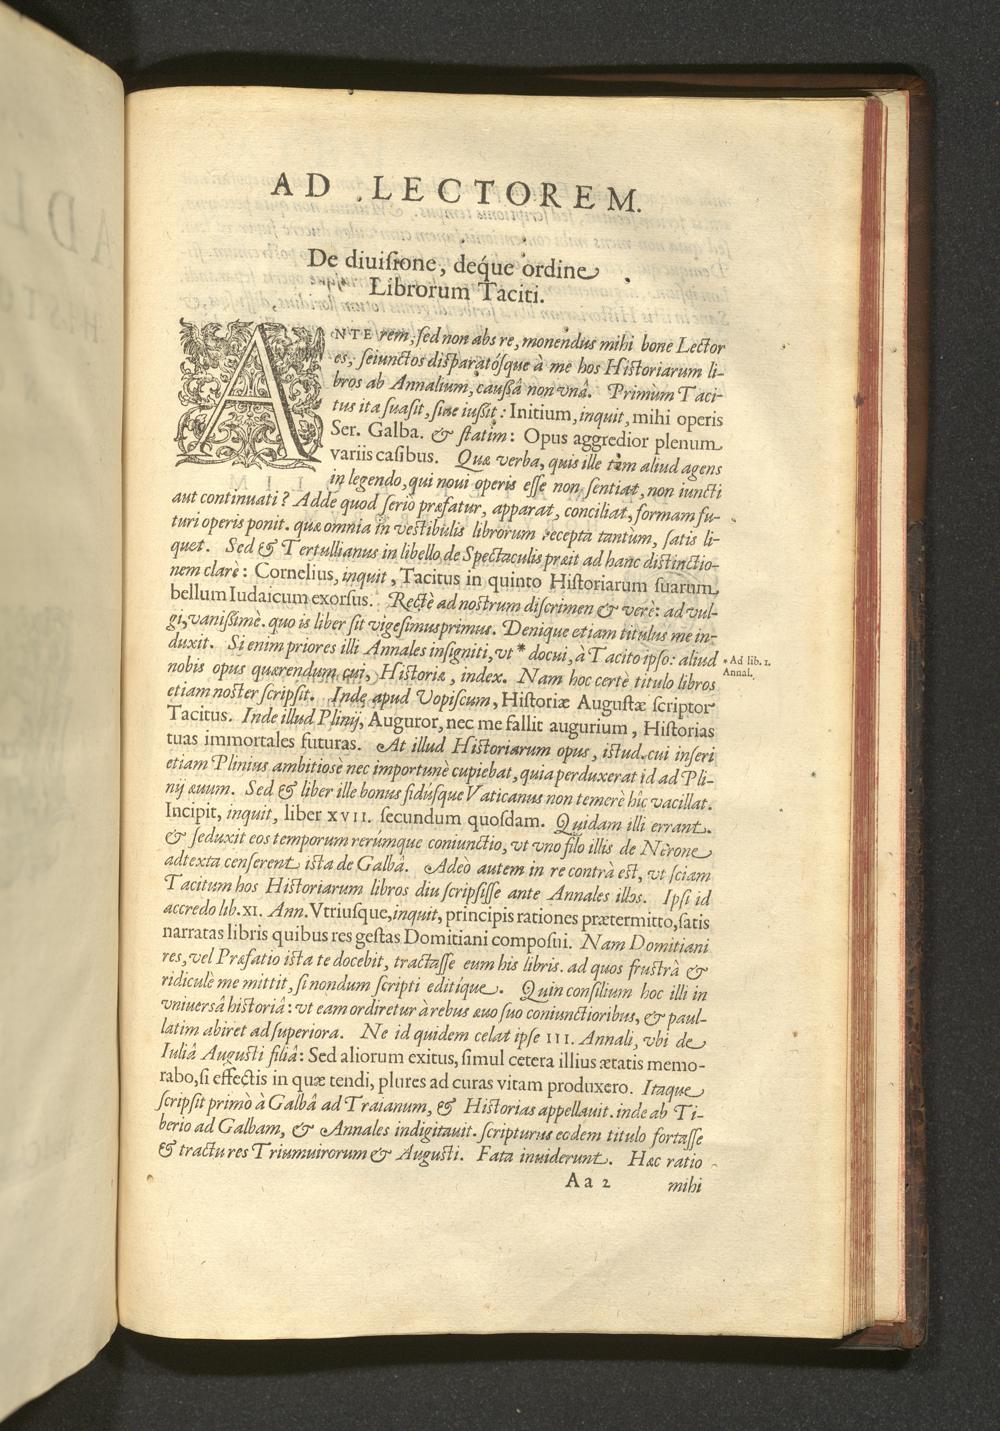 AD LECTOREM.
De diuisione, déque ordine
Librorum Taciti.
ANTE rem, sed non abs re, monendus mihi bone Lector
es, seiunctos disparatósque à me hos Historiarum li-
bros ab Annalium, caussâ non vnâ. Primùm Taci-
tus ita suasit, siue iussit: Initium, inquit, mihi operis
Ser. Galba. & statim: Opus aggredior plenum
variis casibus. Quæ verba, quis ille tam aliud agens
in legendo, qui noui operis esse non sentiat, non iuncti
aut continuati? Adde quod seriò præfatur, apparat, conciliat, formam fu-
turi operis ponit. quæ omnia in vestibulis librorum recepta tantùm, satis li-
quet. Sed & Tertullianus in libello de Spectaculis præit ad hanc distinctio-
nem clarè: Cornelius, inquit, Tacitus in quinto Historiarum suarum
bellum Iudaicum exorsus. Rectè ad nostrum discrimen & verè: ad vul-
gi, vanissimè. quo is liber sit vigesimusprimus. Denique etiam titulus me in-
duxit. Si enim priores illi Annales insigniti, vt * docui, à Tacito ipso: aliud
nobis opus quærendum cui, Historiæ, index. Nam hoc certè titulo libros
etiam noster scripsit. Inde apud Vopiscum, Historiæ Augustæ scriptor
Tacitus. Inde illud Plinij, Auguror, nec me fallit augurium, Historias
tuas immortales futuras. At illud Historiarum opus, istud. cui inseri
etiam Plinius ambitiosè nec importunè cupiebat, quia perduxerat id ad Pli-
nij æuum. Sed & liber ille bonus fidúsque Vaticanus non temerè hîc vacillat.
Incipit, inquit, liber XVII. secundum quosdam. Quidam illi errant.
& seduxit eos temporum rerúmque coniunctio, vt vno filo illis de Nerone
adtexta censerent ista de Galbâ. Adeò autem in re contrà est, vt sciam
Tacitum hos Historiarum libros diu scripsisse ante Annales illos. Ipsi id
accredo lib. XI. Ann. Vtriusque, inquit, principis rationes prætermitto, satis
narratas libris quibus res gestas Domitiani composui. Nam Domitiani
res, vel Præfatio ista te docebit, tractasse eum his libris. ad quos frustrà &
ridiculè me mittit, si nondum scripti editíque. Quin consilium hoc illi in
vniuersâ historiâ: vt eam ordiretur à rebus æuo suo coniunctioribus, & paul-
latim abiret ad superiora. Ne id quidem celat ipse III. Annali, vbi de
Iuliâ Augusti filiâ: Sed aliorum exitus, simul cetera illius ætatis memo-
rabo, si effectis in quæ tendi, plures ad curas vitam produxero. Itaque
scripsit primò à Galbâ ad Traianum, & Historias appellauit. inde ab Ti-
berio ad Galbam, & Annales indigitauit. scripturus eodem titulo fortasse
& tractu res Triumuirorum & Augusti. Fata inuiderunt. Hæc ratio
Aa 2 mihi
* Ad lib. 1.
Annal.